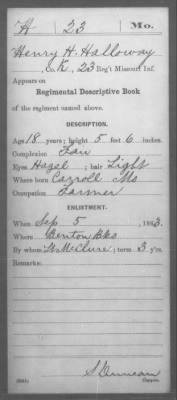 H 23 Mo.
Henry H. Halloway
, Co. K, 23 Reg't Missouri Inf.
Appears on
Regimental Descriptive Book
of the regiment named above.
DESCRIPTION.
Age 18 years; height 5 feet 6 inches.
Complexion Fair
Eyes Hazel ; hair Light
Where born Carroll Mo
Occupation Farmer
ENLISTMENT.
When Sep 5 , 1863.
Where Benton Bks
By whom W McClure ; term 3 y'rs.
Remarks:
S Duncan
Copyist.